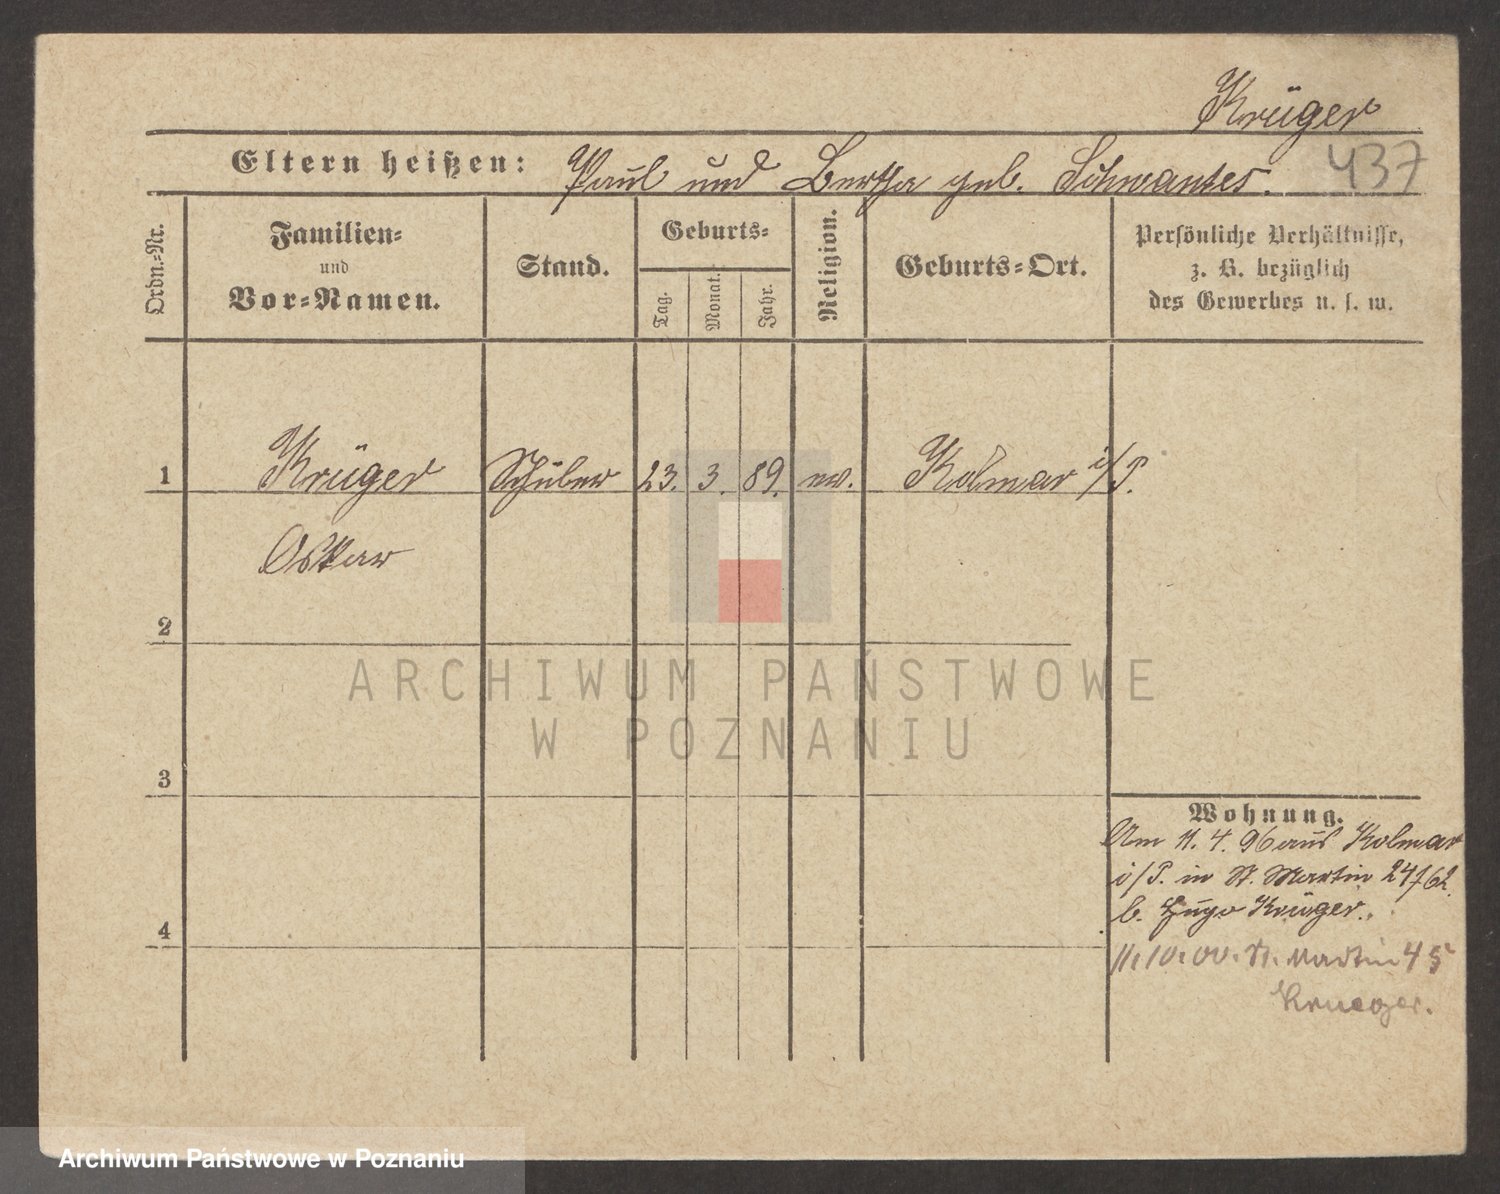 Krüger
Eltern heißen: Paul und Bertha geb. Schwantes.
437
Ordn.=Nr.
Familien=
und
Vor=Namen.
Stand.
Geburts=
Tag.
Monat.
Jahr.
Religion.
Geburts=Ort.
Persönliche Verhältnisse,
z. B. bezüglich
des Gewerbes u. s. w.
1 Krüger Schüler 23. 3. 89. ev. Kolmar i/P.
Oskar
2
ARCHIWUM PAŃSTWOWE
W POZNANIU
3
Wohnung.
Am 11. 4. 96 aus Kolmar
i/P. in St. Martin 24/62.
b. Hugo Krüger.
4
11.10.00. St. Martin 45
Krueger.
Archiwum Państwowe w Poznaniu